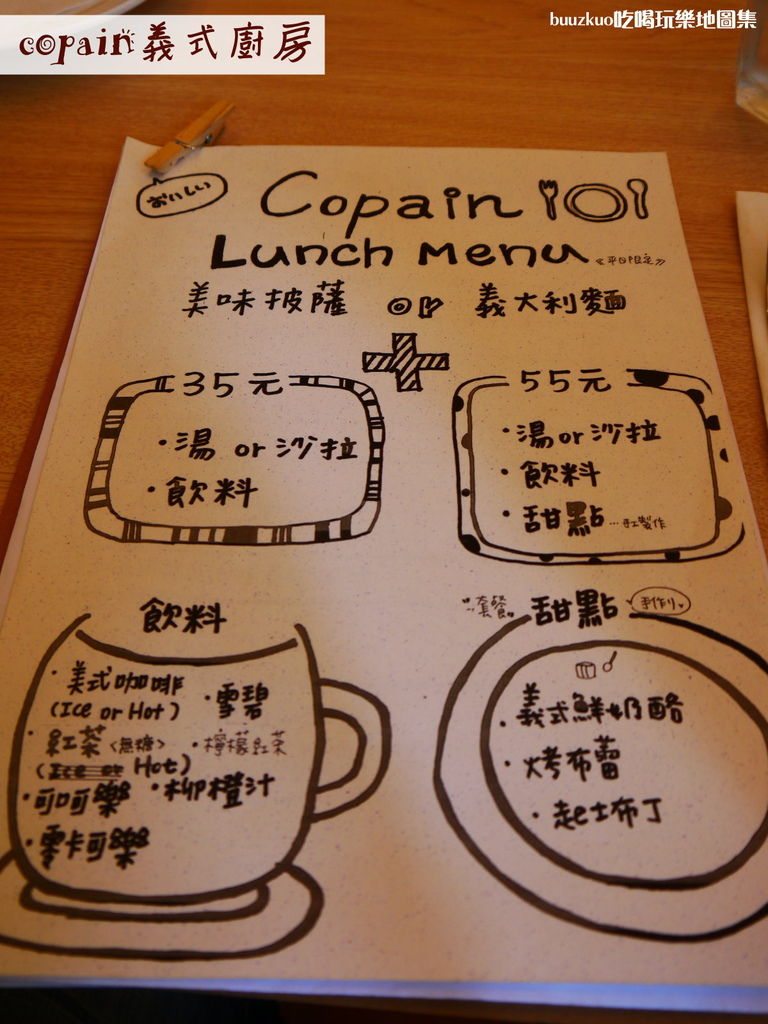 copain義式廚房
buuzkuo吃喝玩樂地圖集
おいしい
Copain
Lunch Menu
《平日限定》
美味披薩 or 義大利麵
35元
・湯 or 沙拉
・飲料
55元
・湯or沙拉
・飲料
・甜點...手工製作
飲料
・美式咖啡
(Ice or Hot)
・雪碧
・紅茶<無糖>
(Ice or Hot)
・檸檬紅茶
・可口可樂
・柳橙汁
・零卡可樂
套餐
甜點
手作り
・義式鮮奶酪
・烤布蕾
・起士布丁